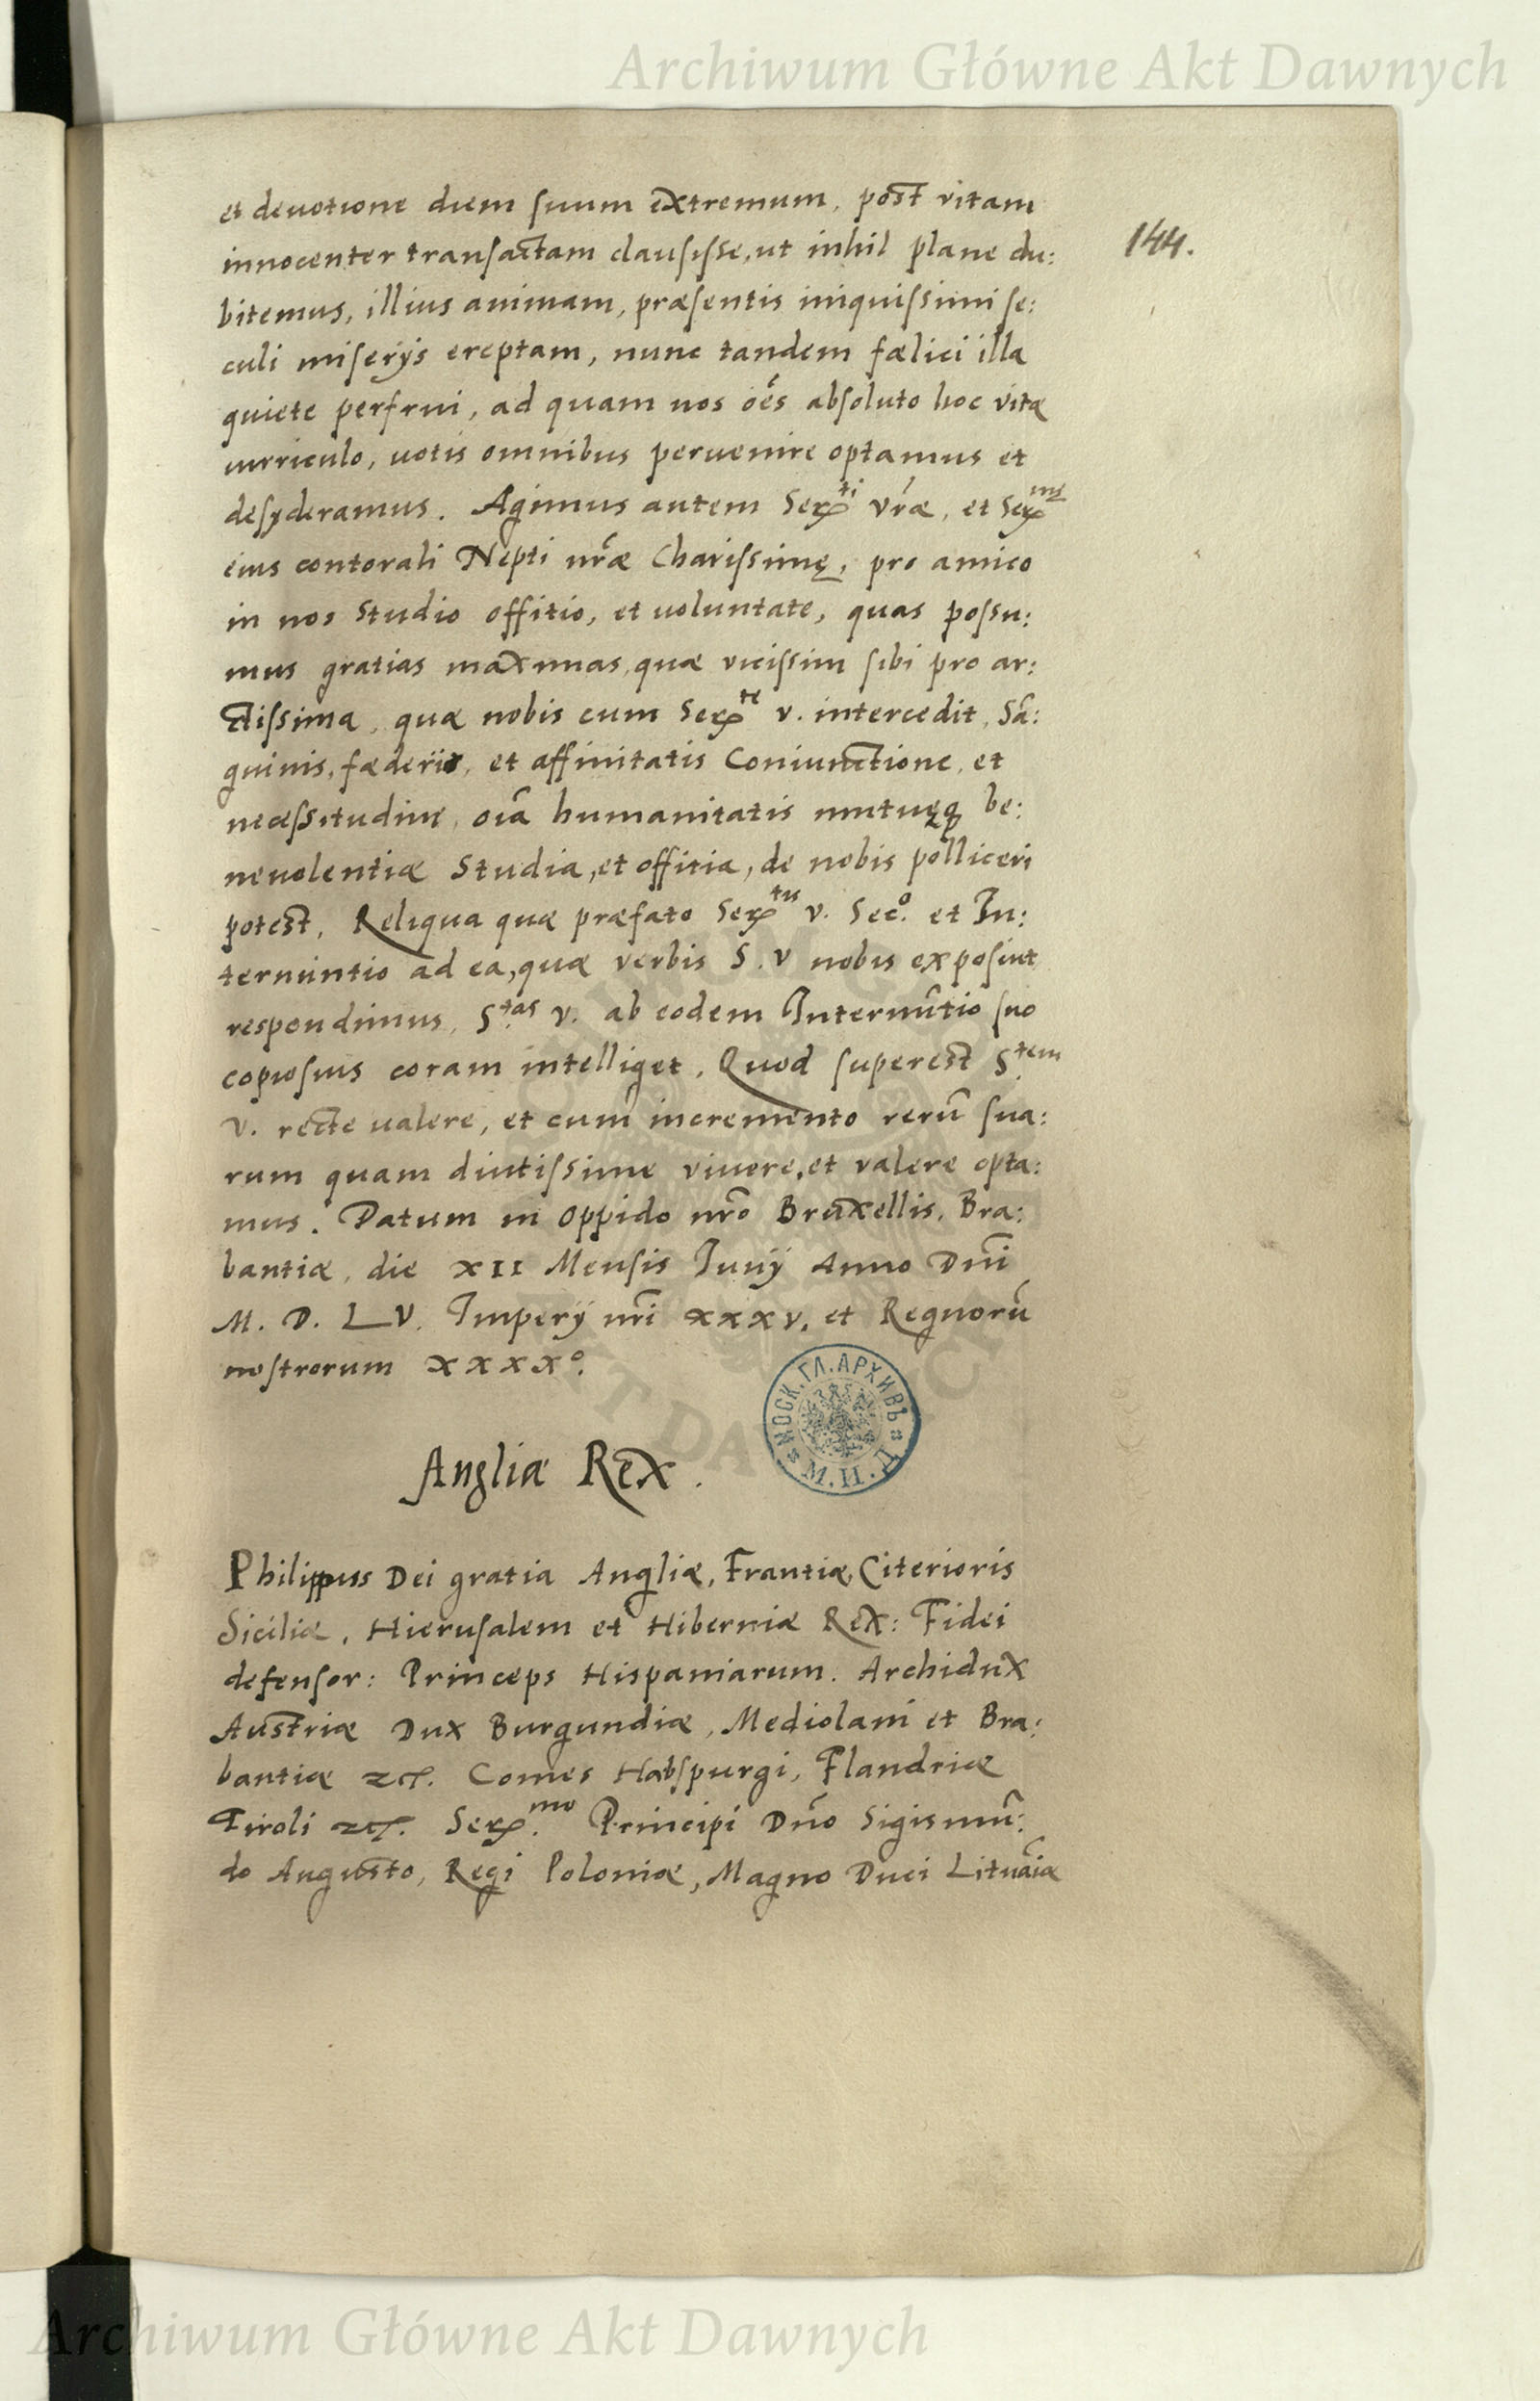 Archiwum Główne Akt Dawnych
144.
et deuotione diem suum extremum, post vitam
innocenter transactam clausisse, ut inhil plane du:
bitemus, illius animam, præsentis iniquissimi se:
culi miserÿs ereptam, nunc tandem fælici illa
quiete perfrui, ad quam nos oẽs absoluto hoc vitæ
curriculo, uotis omnibus peruenire optamus et
desyderamus. Agimus autem Serᵗⁱ vræ, et Serᵐę
eius contorali Nepti nræ Charissimę, pro amico
in nos Studio offitio, et uoluntate, quas possu:
mus gratias maximas, quæ vicissim sibi pro ar:
ctissima, quæ nobis cum Serᵗᵉ v. intercedit, Sã:
guinis, fæderis, et affinitatis Coniunctione, et
necessitudine, oĩa humanitatis mutuęq be:
neuolentiæ Studia, et offitia, de nobis polliceri
potest. Reliqua quæ præfato Serᵗⁱˢ v. Sec.º et In:
ternuntio ad ea, quæ verbis S. v nobis exposuit
respondimus, S.ᵗᵃˢ v. ab eodem Internũtio suo
copiosius coram intelliget. Quod superest S.ᵗᵉᵐ
v. recte ualere, et cum incremento rerũ sua:
rum quam diutissime viuere, et valere opta:
mus. Datum in oppido nrõ Bruxellis, Bra:
bantiæ, die XII Mensis Junÿ Anno Dnĩ
M. D. LV. Imperÿ nrĩ xxxv. et Regnorũ
nostrorum xxxxº.
МОСК. ГЛ. АРХИВЪ
М. И. Д.
Angliæ Rex.
Philippus Dei gratia Angliæ, Frantiæ, Citerioris
Siciliæ, Hierusalem et Hiberniæ Rex: Fidei
defensor: Princeps Hispaniarum. Archidux
Austriæ Dux Burgundiæ, Mediolani et Bra:
bantiæ etc. Comes Habspurgi, Flandriæ
Tiroli etc. Ser.ᵐᵒ Principi Dnõ Sigismũ:
do Augusto, Regi Poloniæ, Magno Duci Lituãiæ
Archiwum Główne Akt Dawnych